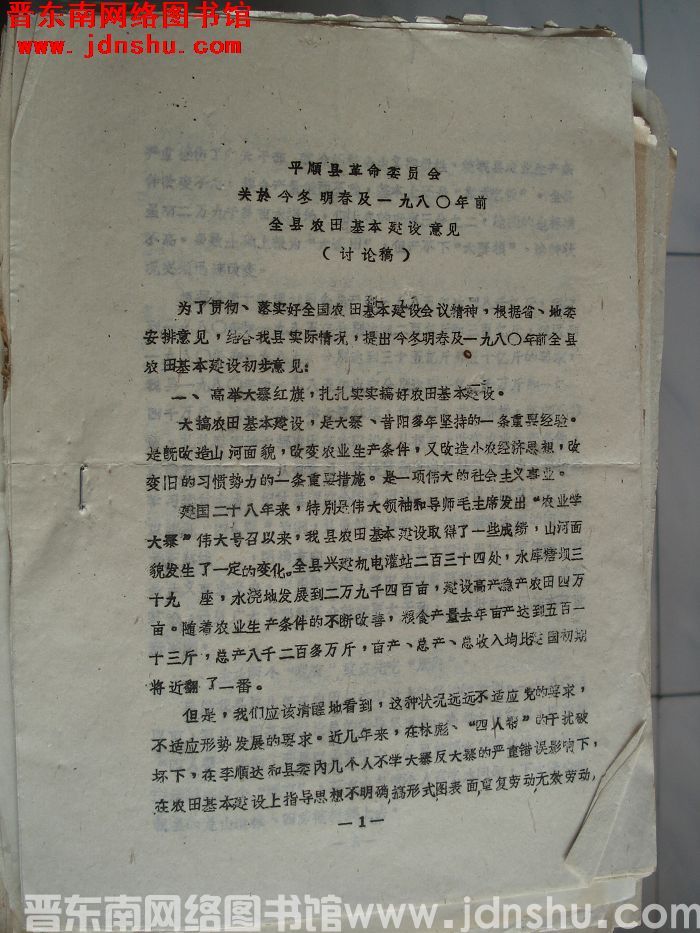 晋东南网络图书馆
www.jdnshu.com
平顺县革命委员会
关於今冬明春及一九八〇年前
全县农田基本建设意见
（讨论稿）
为了贯彻、落实好全国农田基本建设会议精神，根据省、地委
安排意见，结合我县实际情况，提出今冬明春及一九八〇年前全县
农田基本建设初步意见：
一、高举大寨红旗，扎扎实实搞好农田基本建设。
大搞农田基本建设，是大寨、昔阳多年坚持的一条重要经验。
是既改造山河面貌，改变农业生产条件，又改造小农经济思想，改
变旧的习惯势力的一条重要措施。是一项伟大的社会主义事业。
建国二十八年来，特别是伟大领袖和导师毛主席发出“农业学
大寨”伟大号召以来，我县农田基本建设取得了一些成绩，山河面
貌发生了一定的变化。全县兴建机电灌站二百三十四处，水库塘坝三
十九 座，水浇地发展到二万九千四百亩，建设高产稳产农田四万
亩。随着农业生产条件的不断改善，粮食产量去年亩产达到五百一
十三斤，总产八千二百多万斤，亩产、总产、总收入均比建国初期
将近翻了一番。
但是，我们应该清醒地看到，这种状况远远不适应党的要求，
不适应形势发展的要求。近几年来，在林彪、“四人帮”的干扰破
坏下，在李顺达和县委内几个人不学大寨反大寨的严重错误影响下，
在农田基本建设上指导思想不明确，搞形式图表面，重复劳动无效劳动，
—1—
晋东南网络图书馆 www.jdnshu.com